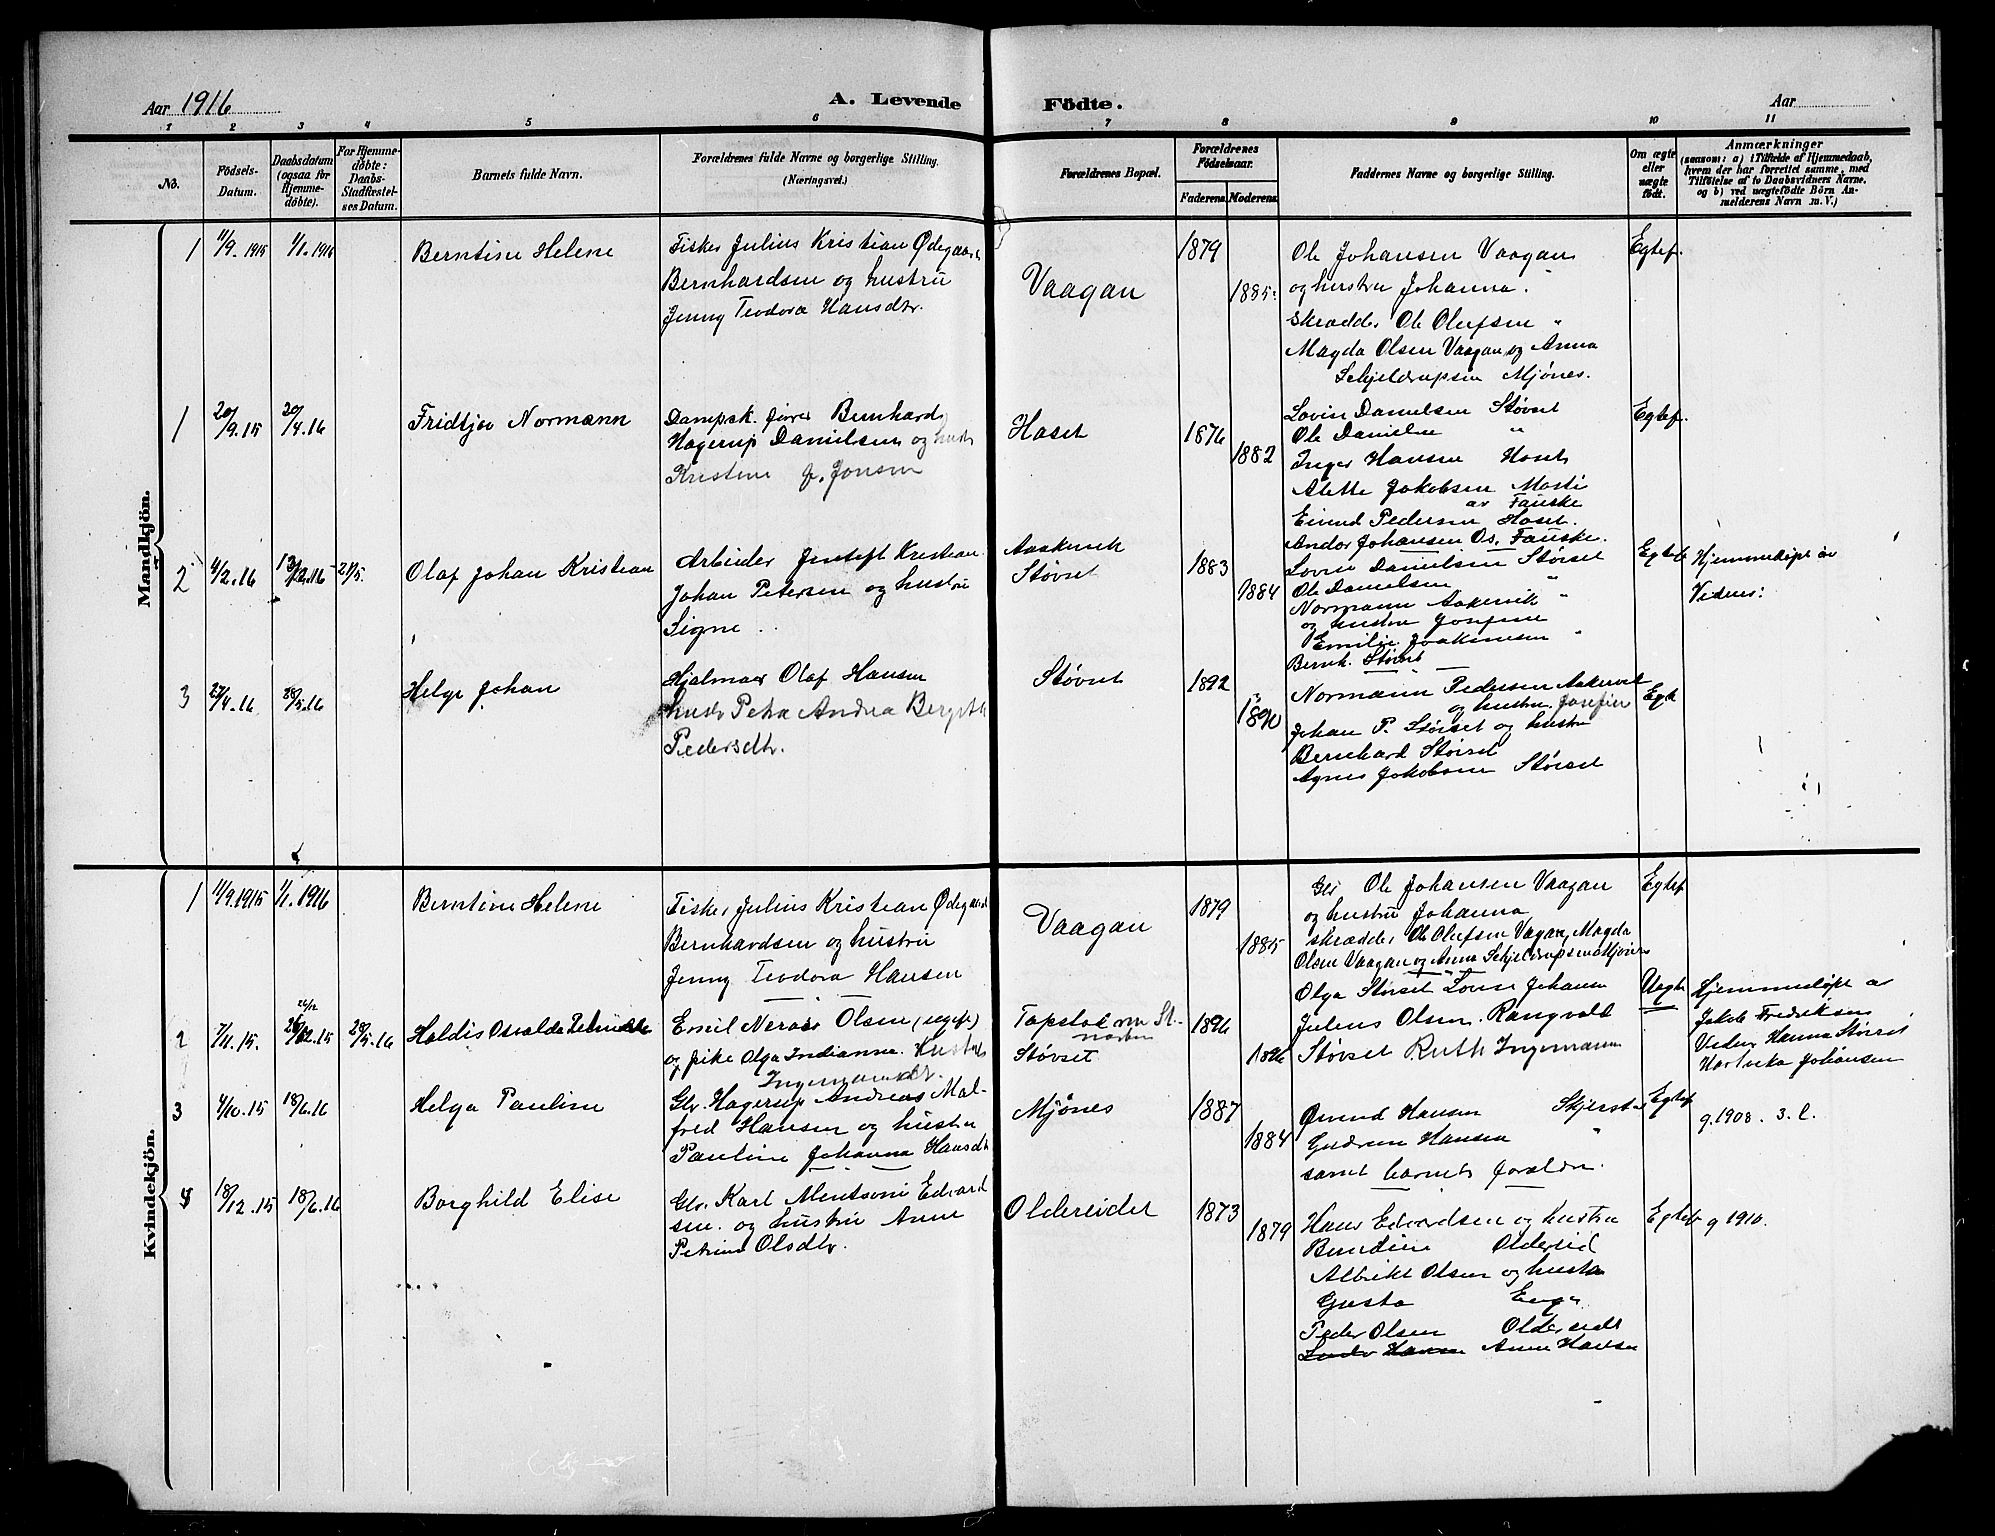 Aar 1916
A. Levende
Födte.
Aar
1 2 3 4 5 6 7 8 9 10 11
No.
Födsels-
Datum.
Daabsdatum
(ogsaa for
Hjemme-
döbte).
For Hjemme-
döbte:
Daabs-
Stadfæstel-
ses Datum.
Barnets fulde Navn.
Forældrenes fulde Navne og borgerlige Stilling.
(Næringsvei.)
Forældrenes Bopæl.
Forældrenes
Födselsaar.
Faderens. Moderens.
Faddernes Navne og borgerlige Stilling.
Om ægte
eller
uægte
født.
Anmærkninger
(saasom: a) i Tilfælde af Hjemmedaab,
hvem der har forrettet samme, med
Tilföielse af to Daabsvidners Navne,
og b) ved uægtefödte Börn An-
melderens Navn m. V.)
Mandkjön.
1 11/9.1915 1/1.1916 Berntine Helene
Fisker Julius Kristian Ødegaard
Bernhardsen og hustru
Jenny Teodora Hansdtr.
Vaagan
1879
1885
Ole Johansen Vaagan
og hustru Johanna "
Skrædder Ole Olufsen "
Magda Olsen Vaagan og Anna
Schjeldrupsen Mjönes.
Egtef.
1 20/9.15 20/4.16 Fridtjov Normann
Dampsk. fører Bernhard
Hagerup Danielsen og hustr
Kristine J. Jonsen
Hoset
1876
1882
Lovise Danielsen Støvset
Ole Danielsen "
Inger Hansen Hoset
Alette Jakobsen
av Fauske
Eivind Pedersen Hoset.
Andor Johansen Os, Fauske.
Egtef.
2 4/2.16 13/2.16 21/5. Olaf Johan Kristian
Arbeider Kristian
Johan Petersen og hustru
Signe
Aakervik
Støvset
1883
1884
Lovise Danielsen Støvset
Ole Danielsen "
Normann Aakervik "
og hustru Josefine
Emilie Joakimsen "
Bernh. Støvset
Egtef
Hjemmedøpt av
Vidner:
3 27/4.16 28/5.16 Helge Johan
Hjalmar Olaf Hansen
hustr Petra Andrea Bergith
Pedersdtr.
Støvset
1892
1890
Normann Pedersen Aakervik
og hustru Josefine
Johan P. Støvset og hustru
Bernhard Støvset
Agnes Jakobsen Støvset
Egte
Kvindekjön.
1 11/9.1915 1/1.1916 Berntine Helene
Fisker Julius Kristian Ødegaard
Bernhardsen og hustru
Jenny Teodora Hansen
Vaagan
1879
1885
Gbr Ole Johansen Vaagan
og hustru Johanna
skrædder Ole Olufsen Vagan, Magda
Olsen Vaagan og Anna Schjeldrupsen Mjönes
Egtef
2 7/11.15. 26/12 26/12.15 28/5.16 Haldis Osvalda
Emil Olsen (uegte)
og pike Olga Indianna
Ingemannsdtr.
Støvset
1896
1896
Olga Støvset Lovise Johansen
Julius Olsen. Rangvald
Støvset Ruth Ingemann
Uegte
Hjemmedøpt av
Jakob Fredriksen
Vidner Hanna Støvset
Hartvika Johansen
3 4/10.15 18/6.16 Helga Pauline
Gbr. Hagerup Andreas Mal-
fred Hansen og hustru
Pauline Johanna Hansdtr
Mjönes
1887
1884
Øivind Hansen Skjerstad
Gudrun Hansen "
samt barnets foreldre.
Egtef
g. 1908. 3. l.
4 18/12.15 18/6.16 Borghild Elise
Gbr. Karl Mentsoni Edvard
sen. og hustru Anne
Petrine Olsdtr.
Oldereidet
1873
1879
Hans Edvardsen og hustru
Berndine Oldereid
Albrikt Olsen og hustru
Gusta Enge
Peder Olsen Oldereidet
Hansen Anne Hansen
Egtef
g 1910.